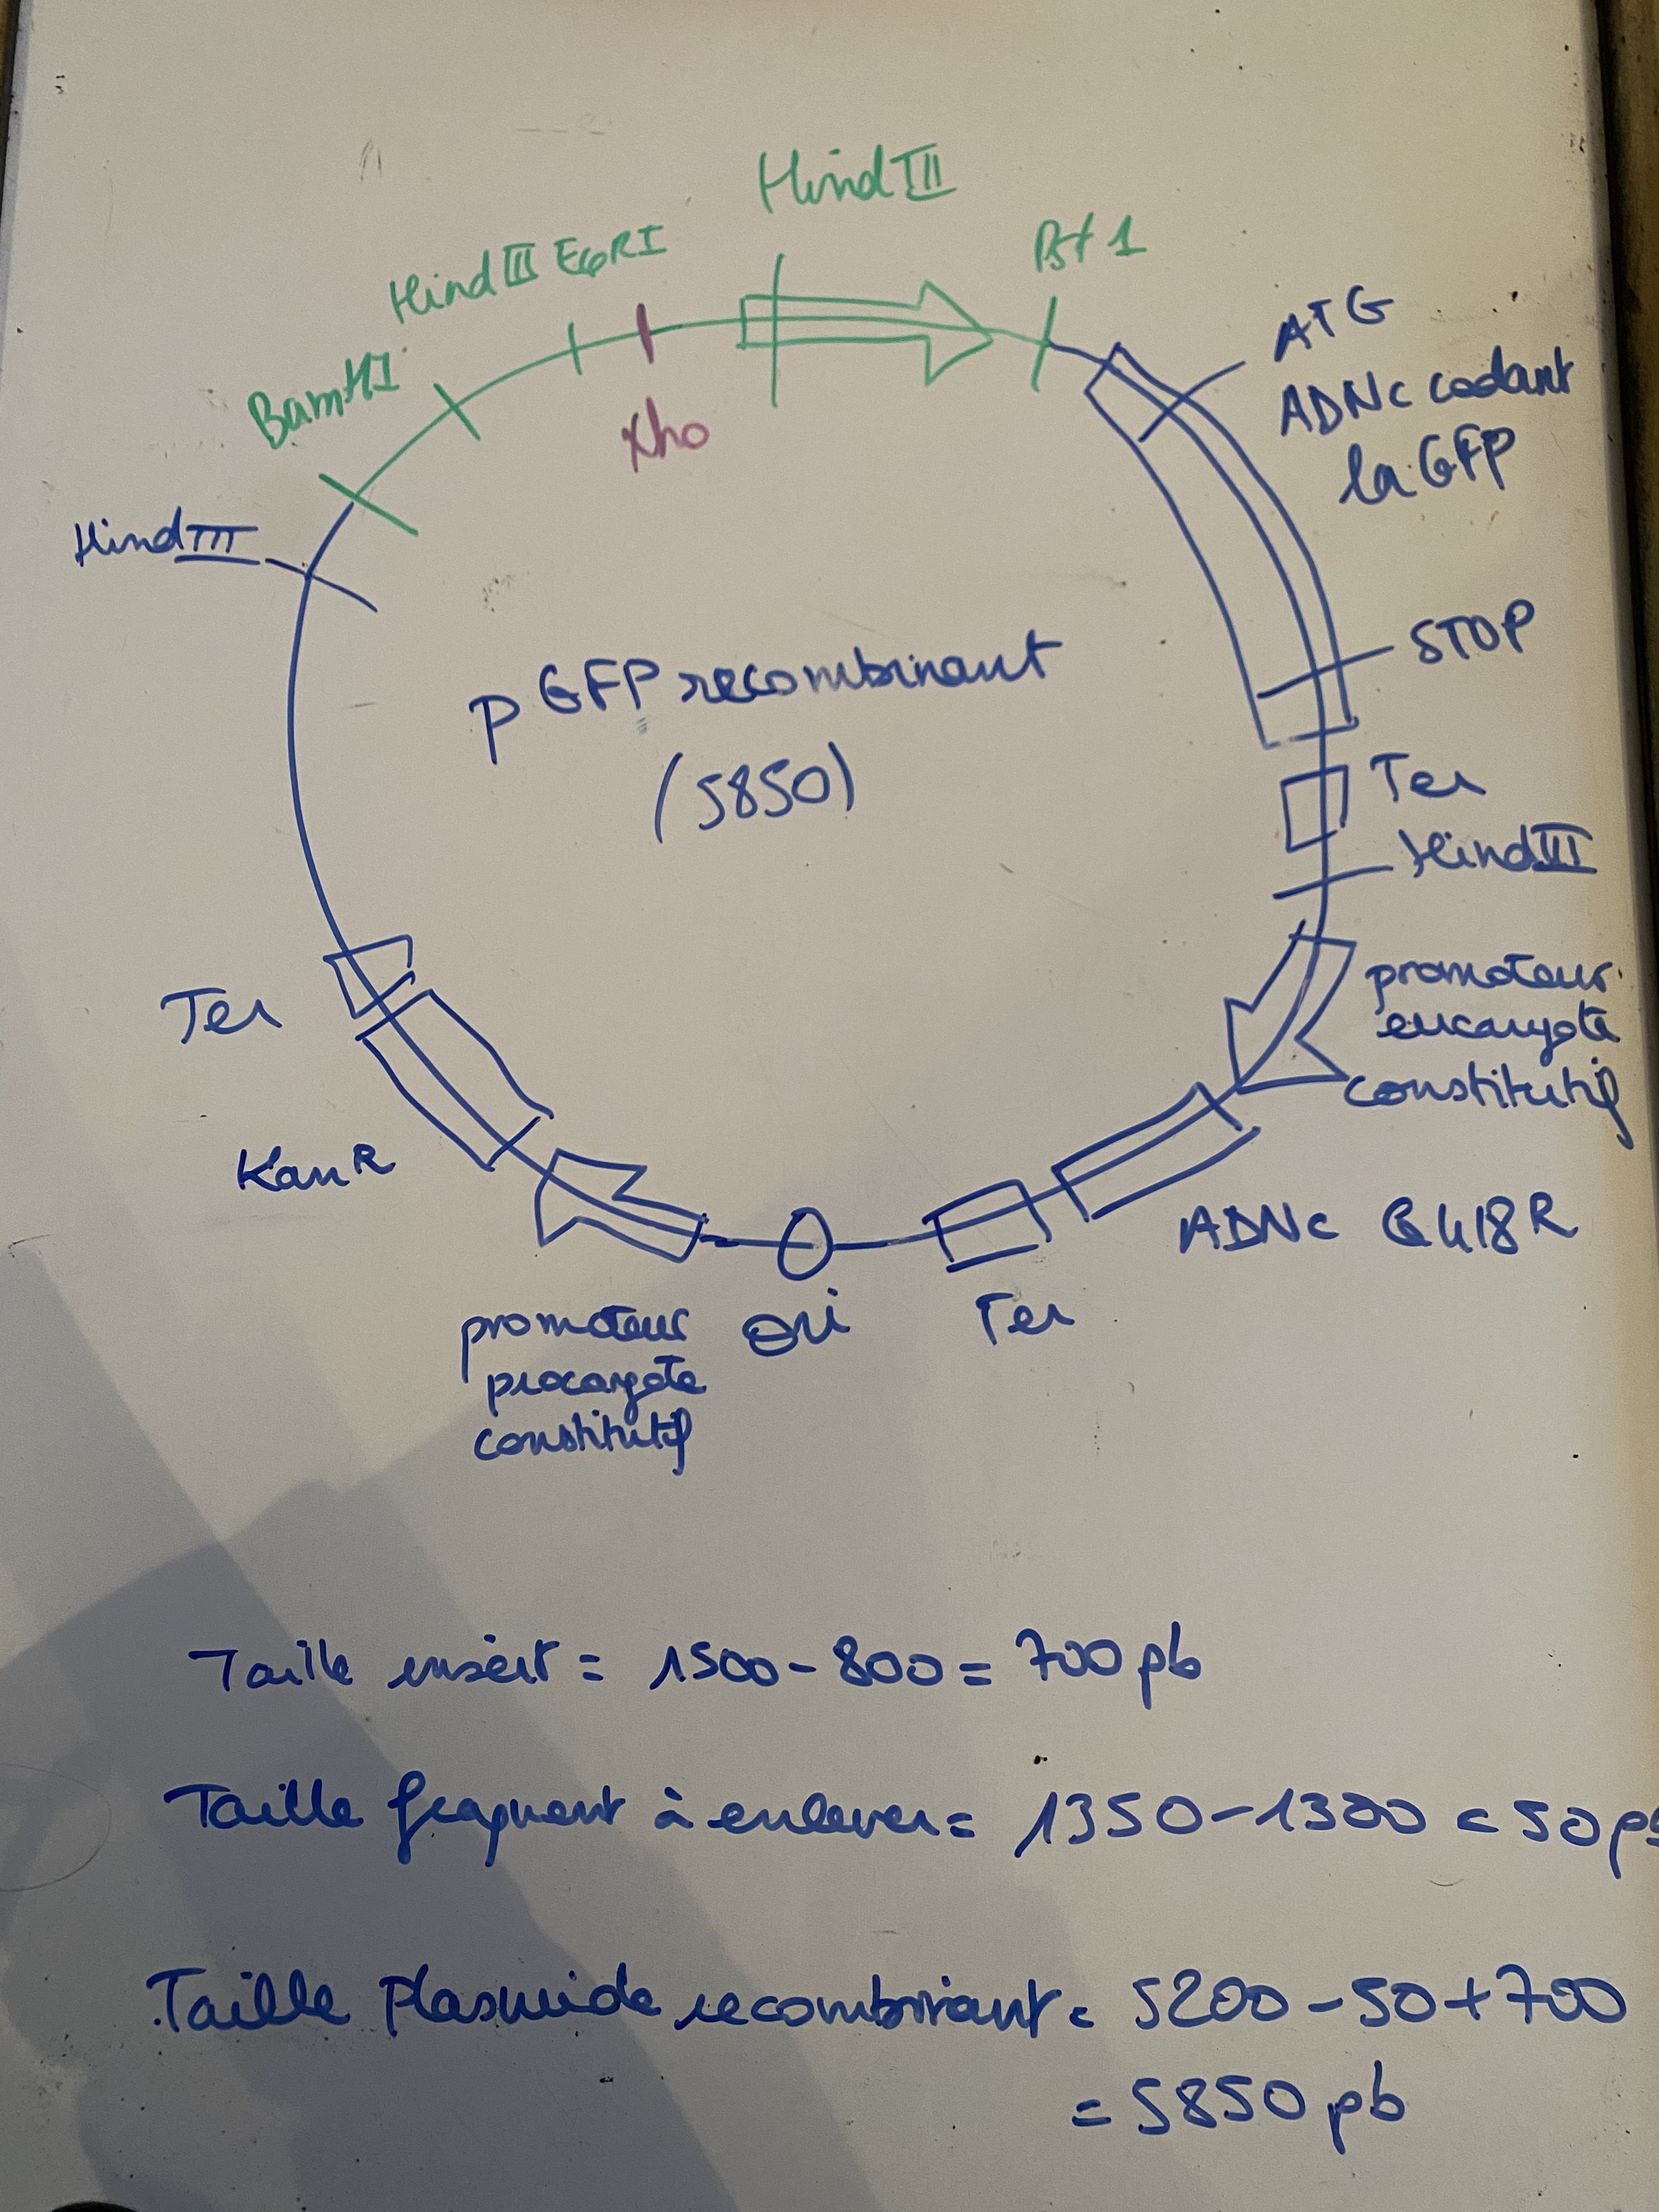 HindIII
Pst1
HindIII EcoRI
BamHI
Xho
ATG
ADNc codant
la GFP
HindIII
pGFP recombinant
(5850)
STOP
Ter
HindIII
promoteur
eucaryote
constitutif
Ter
KanR
ADNc G418R
promoteur
procaryote
constitutif
Ori
Ter
Taille insert = 1500 - 800 = 700 pb
Taille fragment à enlever = 1350 - 1300 = 50 pb
Taille Plasmide recombinant = 5200 - 50 + 700
= 5850 pb